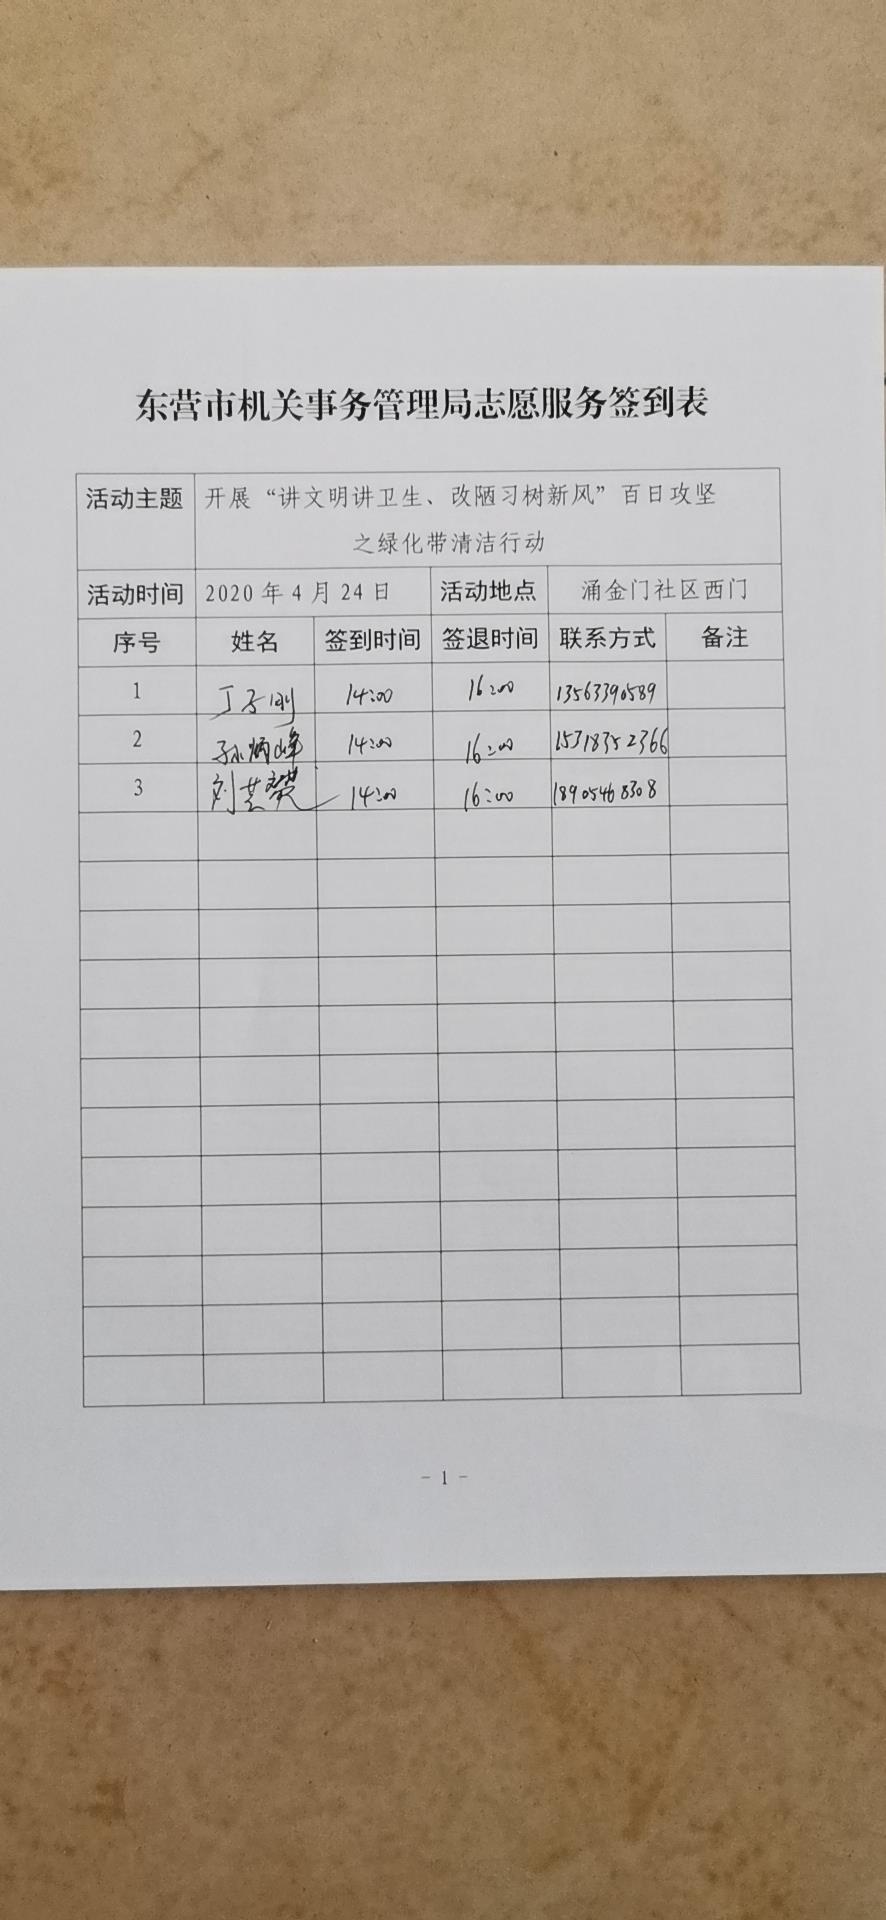 东营市机关事务管理局志愿服务签到表
活动主题 开展“讲文明讲卫生、改陋习树新风”百日攻坚
之绿化带清洁行动
活动时间 2020年4月24日 活动地点 涌金门社区西门
序号 姓名 签到时间 签退时间 联系方式 备注
1 丁子刚 14:00 16:00 13563390589
2 孙炳峰 14:00 16:00 15318352366
3 刘芸 14:00 16:00 18905468308
- 1 -